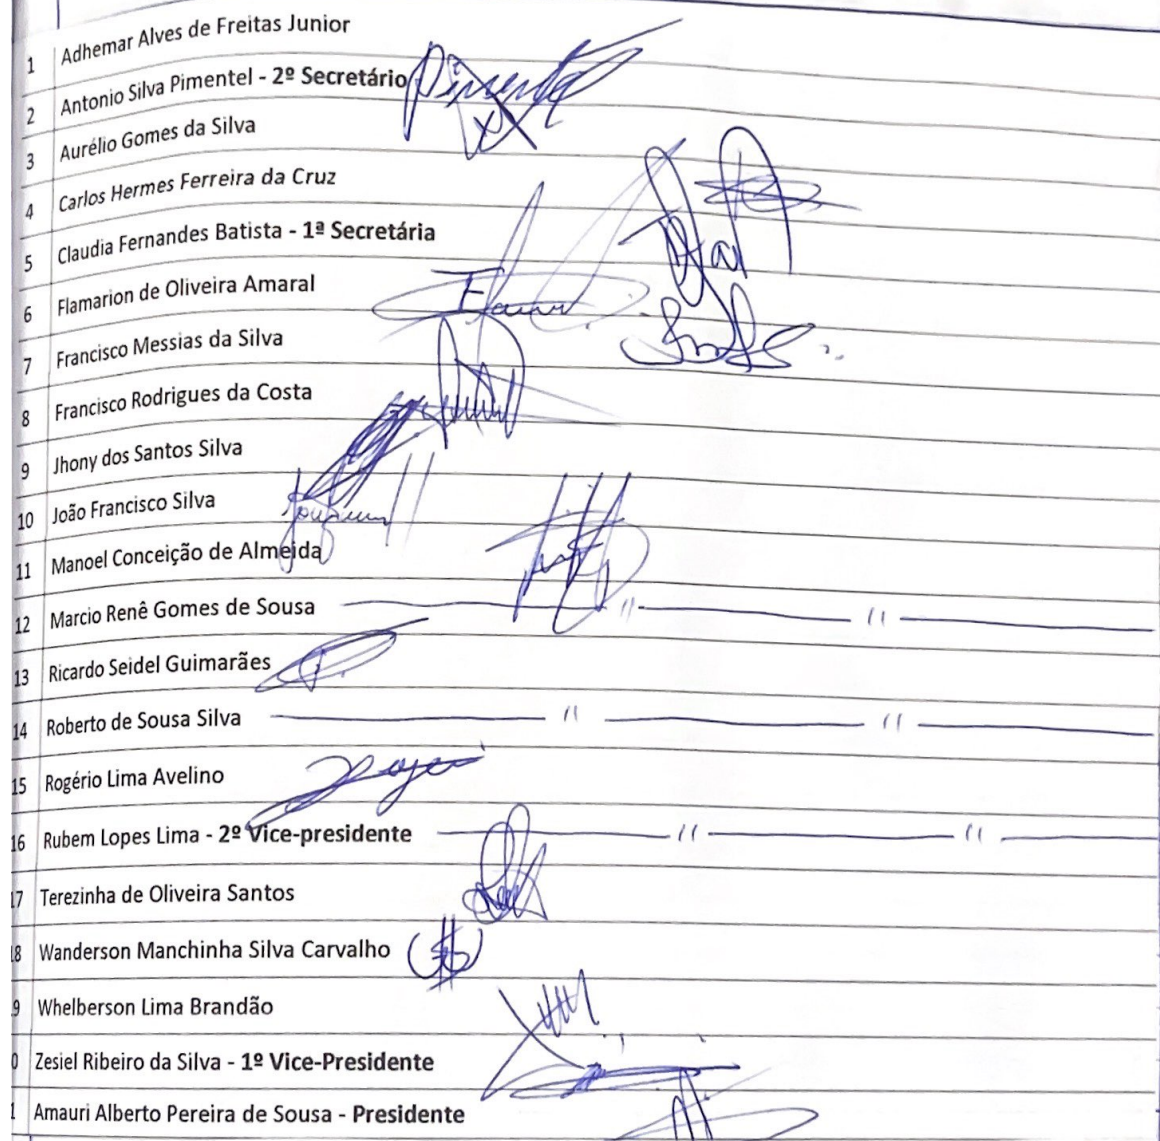 1 Adhemar Alves de Freitas Junior
2 Antonio Silva Pimentel - 2º Secretário
3 Aurélio Gomes da Silva
4 Carlos Hermes Ferreira da Cruz
5 Claudia Fernandes Batista - 1ª Secretária
6 Flamarion de Oliveira Amaral
7 Francisco Messias da Silva
8 Francisco Rodrigues da Costa
9 Jhony dos Santos Silva
10 João Francisco Silva
11 Manoel Conceição de Almeida
12 Marcio Renê Gomes de Sousa
13 Ricardo Seidel Guimarães
14 Roberto de Sousa Silva
15 Rogério Lima Avelino
16 Rubem Lopes Lima - 2º Vice-presidente
17 Terezinha de Oliveira Santos
8 Wanderson Manchinha Silva Carvalho
9 Whelberson Lima Brandão
0 Zesiel Ribeiro da Silva - 1º Vice-Presidente
1 Amauri Alberto Pereira de Sousa - Presidente